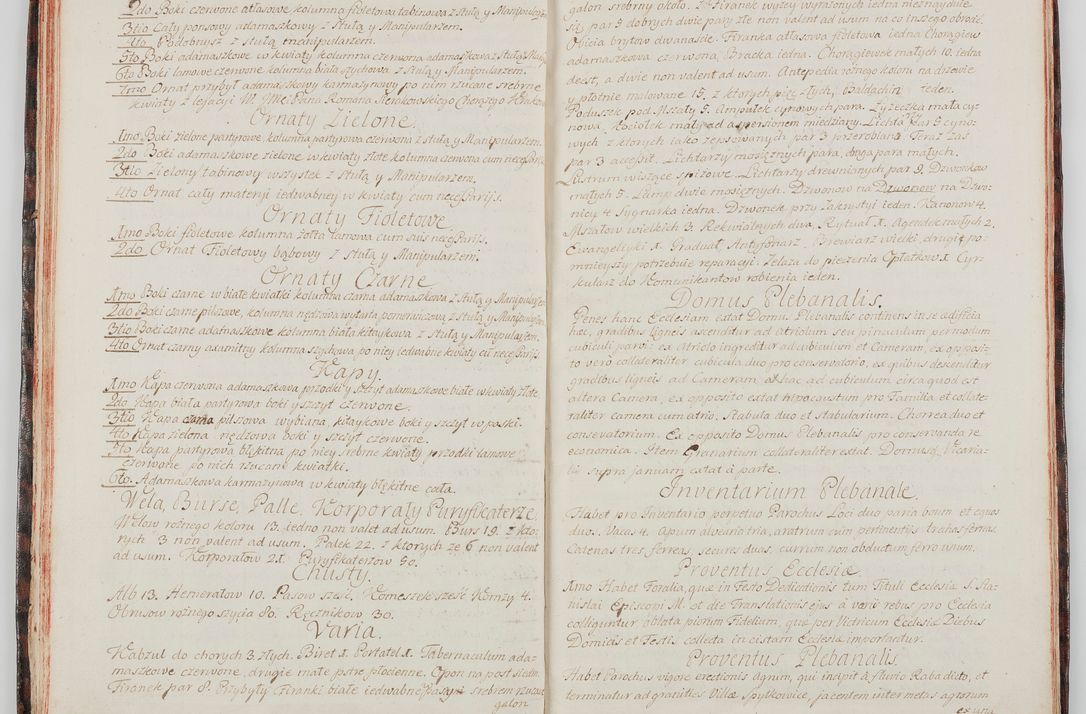 2do Boki czerwone atłasowe kolumna fioletowa tabinowa z stułą y Manipularzem
3tio Cały ponsowy adamaszkowy z Stułą y Manipularzem.
4to Podobnysz z stułą manipularzem.
5to Boki adamaszkowe w kwiaty kolumna czerwona adamaszkowa z Stułą y Man
6to Boki lamowe czerwone kolumna biała szychowa z Stułą y Manipularzem.
7mo Ornat przybył adamaszkowy karmazynowy po nim rzucane srebrne
kwiaty z legacji W. IMci Pana Romana Sierakowskiego Chorążego Krakow
Ornaty Zielone.
1mo Boki zielone partyrowe, kolumna partyrowa czerwona z stułą y Manipularzem.
2do Boki adamaszkowe zielone w kwiaty złote kolumna czerwona cum necessarijs
3tio Zielony tabinowy wszystek z Stułą y Manipularzem.
4to Ornat cały materyi iedwabney w kwiaty cum necessarijs.
Ornaty Fioletowe
1mo Boki fioletowe kolumna żółta lamowa cum suis necessarijs.
2do Ornat Fioletowy bagżowy z stułą y Manipularzem.
Ornaty Czarne
1mo Boki czarne w białe kwiatki kolumna czarna adamaszkowa z Stułą y Manipularzem
2do Boki czarne pilszowe, kolumna nędzowa w tarta pomerańczowa z Stułą y Manipularzem
3tio Boki czarne adamaszkowe kolumna biała kitaykowa z Stułą y Manipularzem.
4to Ornat czarny aksamitny kolumna szychowa po niey iedwabne kwiaty cu necessarijs.
Kapy.
1mo Kapa czerwona adamaszkowa przodki y szczyt adamaszkowe białe w kwiaty złote.
2do Kapa biała partyrowa boki y szczyt czerwone.
3tio Kapa czarna pilsowa wybiana, kitaykowe boki y szczyt w paski.
4to Kapa zielona nędzowa boki y szczyt czerwone.
5to Kapa partyrowa błękitna po niey srebrne kwiaty przodki lamowe
czerwone po nich rzucane kwiatki.
6to. Adamaszkowa karmazynowa w kwiaty błękitne cała.
Wela, Burse, Palle, Korporały Puryfikaterze
Welow rożnego koloru 13. iedno non valet ad usum. Burs 19. z kto-
rych 3 non valent ad usum. Palek 22. z ktorych ze 6 non valent
ad usum. Korporałow 21. Puryfikaterzow 50.
Chusty.
Alb 13. Humerałow 10. Pasow sześć. Komeszek sześć Komży 4.
Obrusow rożnego szycia 80. Ręcznikow 30.
Varia.
Kabzul do chorych 3. złych. Biret 1. Portatel 1. Tabernaculum ada-
maszkowe czerwone, drugie małe pstre płocienne. Opon na post siedm.
Firanek par 8. Przybyły Firanki białe iedwabne pasyą srebrem rzucane
galon
galon srebrny około. Z Firanek wyżey wyrażonych iedna nieznayduie
się, par 5 dobrych dwie pary złe non valent ad usum na co inszego obrocić.
Oficia brytow dwanaście. Firanka atłasowa fioletowa iedna Chorągiew
adamaszkowa czerwona, Bracka iedna. Chorągiewek małych 10. iedna
deest, a dwie non valent ad usum. Antepedia rożnego koloru na drzewie
y płotnie malowane 15. z ktorych pięć złych, Baldachin ieden.
Poduszek pod Mszały 5. Ampułek cynowych para. Łyżeczka mała cy-
nowa, Kociołek mały ad aspersionem miedziany. Lichtarzow 5 cyno-
wych z ktorych iako zepsowanych par 3 przerobiano. Teraz zaś
par 3 accessit. Lichtarzy mosiężnych para, druga para małych.
Lustrum wiszące spiżowe. Lichtarzy drewnianych par 9. Dzwonkow
małych 5. Lamp dwie mosiężnych. Dzwonow na Dzwonow na Dzwo-
nicy 4 Sygnarka iedna. Dzwonek przy Zakrystyi ieden. Kacionow 4.
Mszałow wielkich 3. Rekwialnych dwa, Rytuał 1. Agendek małych 2.
Ewangeliyki 1. Graduał, Antyfonarz. Brewiarz wielki, drugi po-
mnieyszy potrzebuie reparacyi. Żelaza do pieczenia Opłatkow 1. Cyr-
kularz do Komunikantow robienia ieden.
Domus Plebanalis.
Penes hanc Ecclesiam extat Domus Plebanalis continens in se ædificia
hæc, gradibus ligneis ascenditur ad Atriolum seu pinaculum per modum
cubiculi parvi: ex Atriolo ingreditur ad cubiculum et Cameram, ex opposi-
to vero collateraliter cubicula duo pro conservatorio, ex quibus descenditur
gradibus ligneis ad Cameram, ab hac ad cubiculum circa quod est
altera Camera, ex opposito extat hypocaustum pro Familia et collate-
raliter camera cum atrio. Stabula duo et stabularium. Chorrea duo et
consevatorium. Ex opposito Domus Plebanalis pro conservanda re
economica. Item Granarium collateraliter extat. Domusq Vicaria-
lis supra januam extat à parte.
Inventarium Plebanale.
Habet pro Inventario perpetuo Parochus Loci duo paria boum et equos
duo. Vacas 4. Apum alvearia tria, aratrum cum pertinentijs, trahas ferreas.
Catenas tres, ferreas, secures duas, currum non obductum ferro unum.
Proventus Ecclesiæ
1mo Habet Foralia, quæ in Festo Dedicationis tum Tituli Ecclesiæ S. Sta-
nislai Episcopi M. et die Translationis ejus à varijs rebus pro Ecclesia
colliguntur oblata piorum Fidelium, quæ per Vitricum Ecclesiæ Diebus
Domicis et Festis collecta in cistam Ecclesiæ importantur.
Proventus Plebanalis.
Habet Parochus vigore erectionis Agrum, qui incipit à fluvio Raba dicto, et
terminatur ad granities Villæ Spytkowice, jacentem inter metas agrorum
ex una